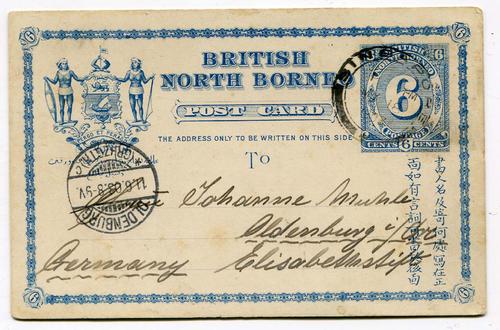 BRITISH
NORTH BORNEO
POST CARD
THE ADDRESS ONLY TO BE WRITTEN ON THIS SIDE.
To
BRITISH
NORTH BORNEO
6
POSTAGE
CENTS 6 CENTS
OLDENBURG
(GRHZGTH.)
Johanne
Oldenburg i/Gr.
Germany Elisabethstift
書由人名及寄何處寫在正
面如有言詞寫在後面